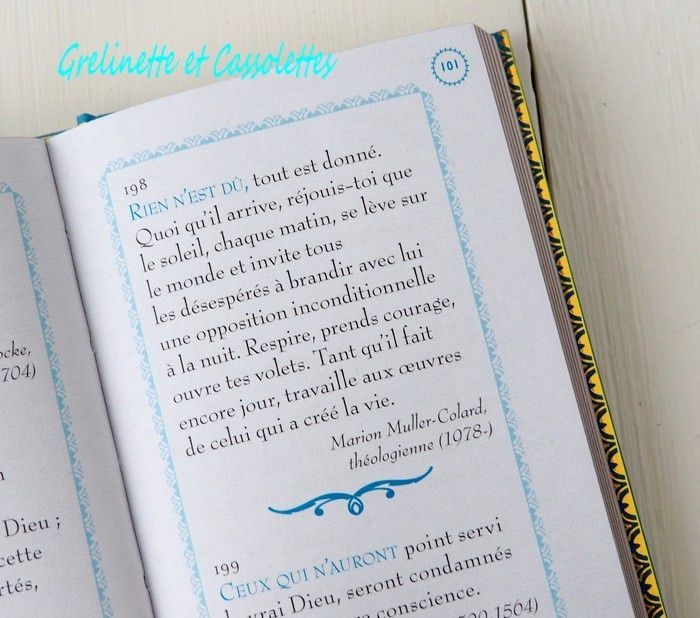 Grelinette et Cassolettes
101
198
RIEN N'EST DÛ, tout est donné.
Quoi qu'il arrive, réjouis-toi que
le soleil, chaque matin, se lève sur
le monde et invite tous
les désespérés à brandir avec lui
une opposition inconditionnelle
à la nuit. Respire, prends courage,
ouvre tes volets. Tant qu'il fait
encore jour, travaille aux œuvres
de celui qui a créé la vie.
Marion Muller-Colard,
théologienne (1978-)
199
CEUX QUI N'AURONT point servi
vrai Dieu, seront condamnés
conscience.
-1564)
ocke,
704)
Dieu ;
cette
rtés,